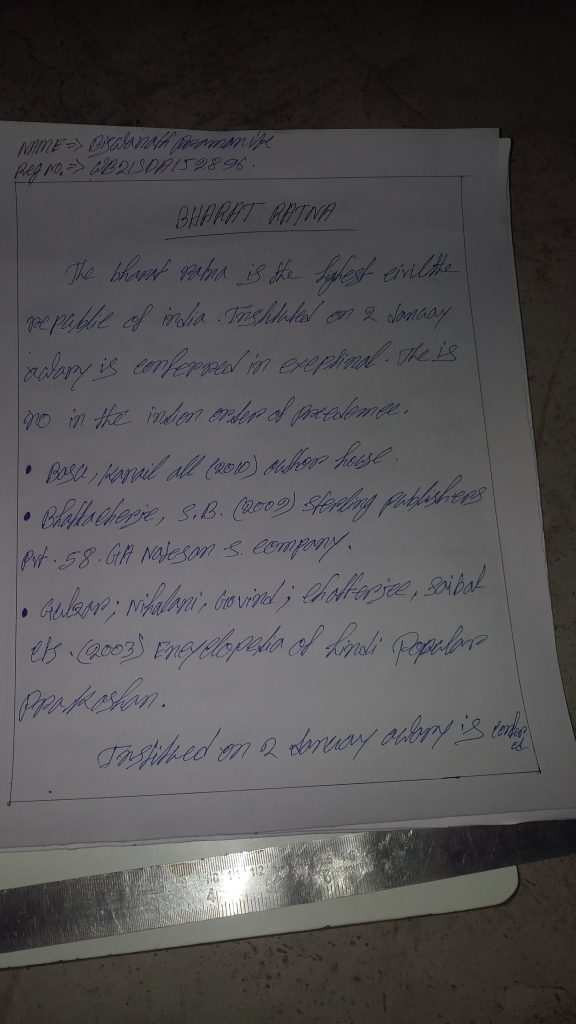 NAME => Biswanath Pramanik
Reg No. => WB21SDA152896.
BHARAT RATNA
The bharat ratna is the hghest civil the
republic of india. Instituted on 2 January
adary is conferred in exeptional. The is
no in the indian order of precedence.
• Basu, Kanail all (2010) author house.
• Bhattacherje, S.B. (2009) Sterling publishers
Pvt. 58. GA Natesan S. company.
• Gulzar; Nihalani, Govind; Chatterjee, Saibal
ets. (2003) Encyclopedia of hindi Popular
Prakashan.
Institued on 2 January adary is confered